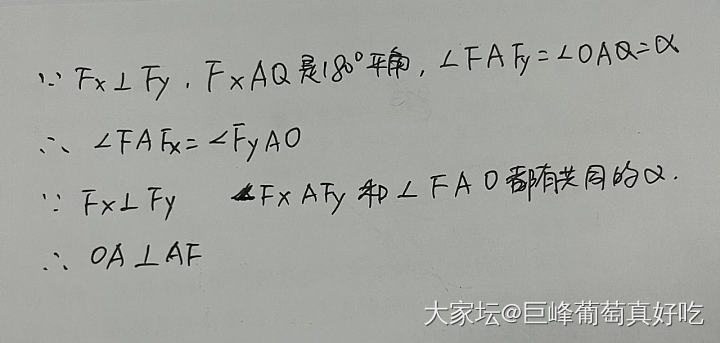 ∵ Fx⊥Fy, FxAQ是180°平角, ∠FAFy=∠OAQ=α
∴ ∠FAFx=∠FyAO
∵ Fx⊥Fy ∠FxAFy和∠FAO都有共同的α.
∴ OA⊥AF
大家坛@巨峰葡萄真好吃